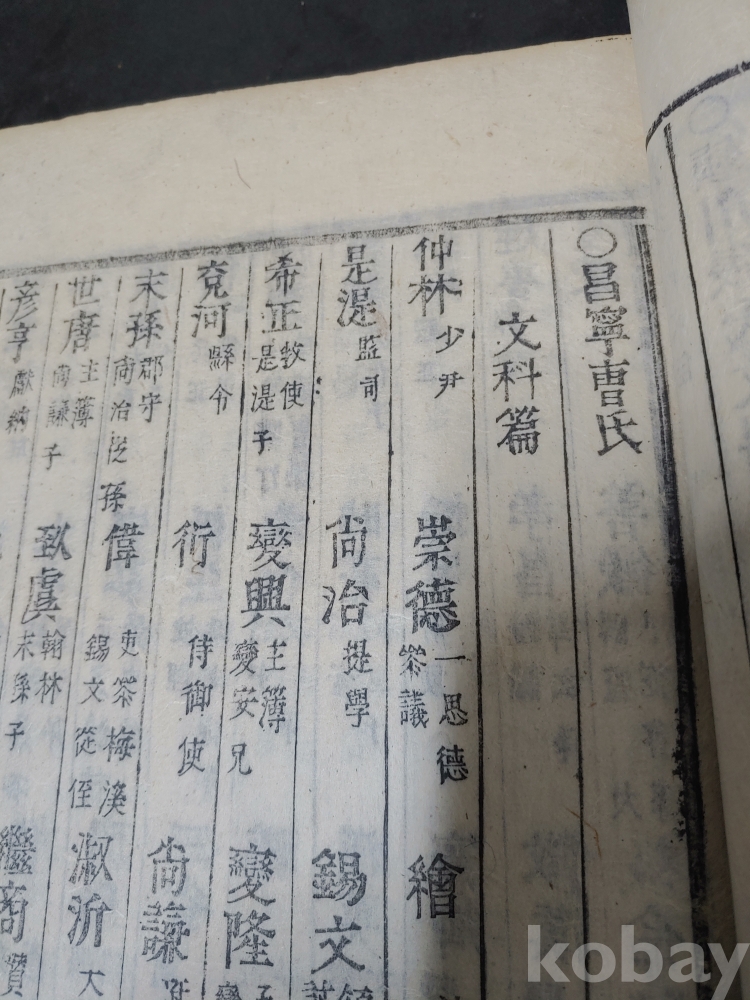 ○昌寧曺氏
文科篇
仲林 少尹
崇德 一思德 叅議
繪
是湜 監司
尙治 提學
錫文
希正 牧使 是湜子
變興 主簿 變安兄
變隆 子
克河 縣令
衍 侍御使
尙謙
末孫 郡守 尙治從孫
偉 吏叅 梅溪 錫文從侄
淑沂 大
世唐 主簿 尙謙子
致虞 翰林 末孫子
繼商
彦亨 獻納
kobay